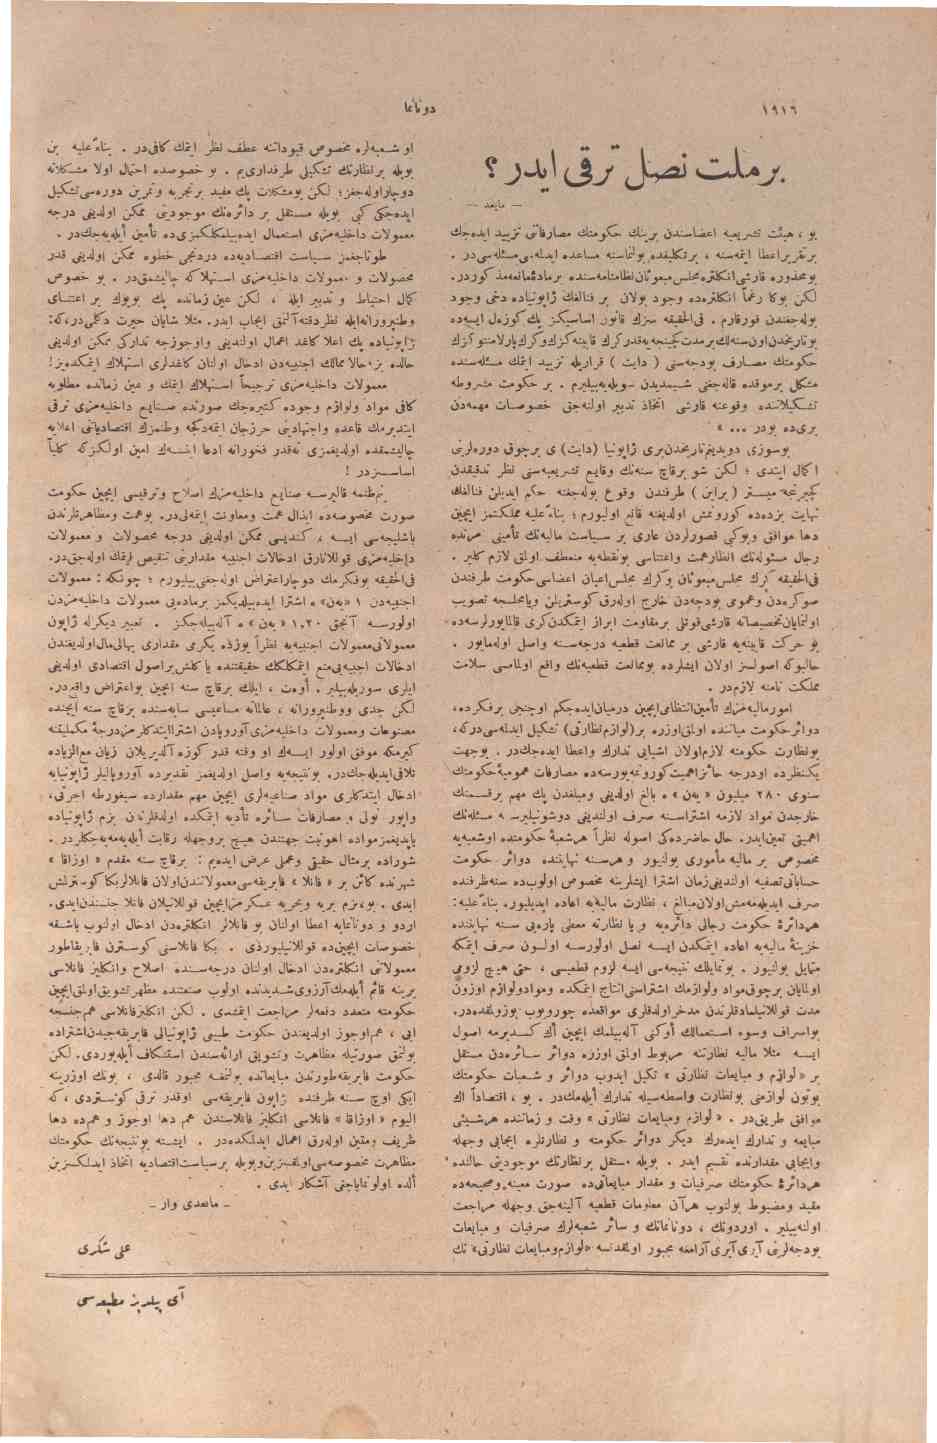 ١٩١٦
دونانما
بر ملت نصل ترقی ایدر ؟
— مابعد —
بو ، هیئت تشریعیه اعضاسندن برینك حكومتك مصارفاتی تزیید ایده‌جك
بر تقریر اعطا ایتمه‌سنه ، بر تكلیفده بولنماسنه مساعده ایدلمه‌سی مسئله‌سی در .
بو محذوره قارشی انكلتره مجلس مبعوثان نظامنامه‌سنده بر مادهٔ مانعه مذكوردر.
لكن بوكا رغماً انكلتره‌ده وجود بولان بر فنالغك ژاپونیاده دخی وجود
بوله‌جغندن قورقارم . فی‌الحقیقه سزك قانون اساسیكز پك كوزل ایسه‌ده
بو تاریخدن اون سنه‌لك بر مدت كچنجه‌یه قدر كرك قابینه‌كز كرك پارلامنتو كزك
حكومتك مصارف بودجه‌سنی ( دایت ) قراریله تزیید ایتمك مسئله‌سنده
مشكل بر موقعده قاله‌جغنی شیمدیدن سویله‌یه‌بیلیرم . بر حكومت مشروطه
تشكیلاتنده وقوعنه قارشی اتخاذ تدبیر اولنه‌جق خصوصات مهمه‌دن
بری‌ده بودر ... »
بو سوزی دویدیغم تاریخدن بری ژاپونیا (دایت) ی بر چوق دوره‌لرینی
اكمال ایتدی ؛ لكن شو بر قاچ سنه‌نك وقایع تشریعیه‌سنی نظر تدقیقدن
كچیرنجه میستر ( براین ) طرفندن وقوع بوله‌جغنه حكم ایدیلن فنالغك
نهایت بزده‌ده كورونمش اولدیغنه قانع اولیورم ؛ بناءً علیه مملكتمز ایچین
دها موافق وبوكبی قصورلردن عاری بر سیاست مالیه‌نك تأمینی امرنده
رجال مسئوله‌نك انظار همت واعتناسی بو نقطه‌یه منعطف اولمق لازم كلیر .
فی‌الحقیقه كرك مجلس مبعوثان وكرك مجلس اعیان اعضاسی حكومت طرفندن
صوكره‌دن وعمومی بودجه‌دن خارج اوله‌رق كوستریلن ویا مجلسجه تصویب
اولنمایان تخصیصاته قارشی قوتلی بر مقاومت ابراز ایتمكدن كری قالمایورلرسه‌ده
بو حركت قابینه‌یه قارشی بر ممانعت قطعیه درجه‌سنه واصل اوله‌مایور .
حالبوكه اصولسز اولان ایشلرده بو ممانعت قطعیه‌نك واقع اولماسی سلامت
مملكت نامنه لازمدر .
امور مالیه‌مزك تأمین انتظامی ایچین درمیان ایده‌جكم اوچنجی بر فكرده ،
دوائر حكومت میاننده اولمق اوزره بر (لوازم نظارتی) تشكیل ایدلمه‌سی‌دركه ،
بو نظارت حكومته لازم اولان اشیایی تدارك واعطا ایده‌جك‌در . بو جهت
یك‌نظرده اودرجه حائز اهمیت كورونمه‌یورسه‌ده مصارفات عمومیهٔ حكومتك
سنوی ٢٨٠ میلیون « یه‌ن » ه بالغ اولدیغی ومبلغدن پك مهم بر قسمنك
خارجدن مواد لازمه اشتراسنه صرف اولندیغی دوشونیلیرسه مسئله‌نك
اهمیتی تعین ایدر. حال حاضرده‌كی اصوله نظراً هر شعبهٔ حكومتده او شعبه‌یه
مخصوص بر مالیه مأموری بولنیور و هر سنه نهایتنده دوائر حكومت
حساباتی تصفیه اولندیغی زمان اشترا ایشلرینه مخصوص اولوب‌ده سنه ظرفنده
صرف ایدیله‌مه‌مش اولان مبالغ ، نظارت مالیه‌یه اعاده ایدیلیور. بناءً علیه :
هر دائرهٔ حكومت رجالی دائره‌یه و یا نظارته معطی پاره‌یی سنه نهایتنده
خزینهٔ مالیه‌یه اعاده ایتمكدن ایسه نصل اولورسه اولسون صرف ایتمكه
متمایل بولنیور . بو تمایلك نتیجه‌سی ایسه لزوم قطعیسی ، حتی هیچ لزومی
اولمایان بر چوق مواد ولوازمك اشتراسنی انتاج ایتمكده ومواد ولوازم اوزون
مدت قوللانیلمادقلرندن مدخر اولدقلری مواقعده چورویوب بوزولمقده‌در.
بو اسراف وسوء استعمالك اوكنی آله‌بیلمك ایچین اك كسدیرمه اصول
ایسه مثلا مالیه نظارتنه مربوط اولمق اوزره دوائر سائره‌دن مستقل
بر « لوازم و مبایعات نظارتی » تشكیل ایدوب دوائر و شعبات حكومتك
بوتون لوازمنی بو نظارت واسطه‌سیله تدارك ایله‌مك‌در . بو ، اقتصاداً اك
موافق طریق‌در . « لوازم ومبایعات نظارتی » وقت و زماننده هر شیئی
مبایعه و تدارك ایده‌رك دیگر دوائر حكومته و نظارتلره ایجابی وجهله
وایجابی مقدارنده تقسیم ایدر . بویله مستقل بر نظارتك موجودیتی حالنده
هر دائرهٔ حكومتك صرفیات و مقدار مبایعاتی‌ده صورت معینه وصحیحه‌ده
مقید ومضبوط بولنوب هر آن معلومات قطعیه آلینه‌جق وجهله مراجعت
اولنه‌بیلیر . اوردونك ، دونانمانك و سائر شعبه‌لرك صرفیات و مبایعات
بودجه‌لرینی آیری آیری آرامغه مجبور اولمقدنسه «لوازم ومبایعات نظارتی» نك
او شعبه‌لره مخصوص قیوداتنه عطف نظر ایتمك كافی‌در . بناءً علیه بن
بویله بر نظارتك تشكیلی طرفداری‌یم . بو خصوصده احتمال اولا مشكلاته
دوچار اوله‌جغز؛ لكن بو مشكلات پك مفید بر تجربه و تمرین دوره‌سی تشكیل
ایده‌جكی كبی بویله مستقل بر دائره‌نك موجودیتی ممكن اولدیغی درجه
معمولات داخلیه‌مزی استعمال ایده‌بیلمكلكمزی‌ده تأمین ایله‌یه‌جك‌در .
طوتاجغمز سیاست اقتصادیه‌ده دردنجی خطوه ممكن اولدیغی قدر
محصولات و معمولات داخلیه‌مزی استهلاكه چالیشمق‌در . بو خصوص
كمال احتیاط و تدبیر ایله ، لكن عین زمانده پك بویوك بر اعتنای
وطنپرورانه ایله نظر دقته آلنمق ایجاب ایدر. مثلا شایان حیرت دكلمی‌در،كه:
ژاپونیاده پك اعلا كاغد اعمال اولندیغی واوجوزجه تداركی ممكن اولدیغی
حالده بز ، حالا ممالك اجنبیه‌دن ادخال اولنان كاغدلری استهلاك ایتمكده‌یز!
معمولات داخلیه‌مزی ترجیحاً استهلاك ایتمك و عین زمانده مطلوبه
كافی مواد ولوازم وجوده كتیره‌جك صورتده صنایع داخلیه‌مزی ترقی
ایتدیرمك قاعده واجتهادینی حرز جان ایتمه‌دكجه وطنمزك اقتصادیاتنی اعلایه
چالیشمقده اولدیغمزی نه قدر فخورانه ادعا ایتسه‌ك امین اولكزكه كلیاً
اساسسزدر !
بنم ظنمه قالیرسه صنایع داخلیه‌مزك اصلاح وترقیسی ایچین حكومت
صورت مخصوصه‌ده ابذال همت ومعاونت ایتمه‌لی‌در. بو همت ومظاهرتلرندن
باشلیجه‌سی ایسه ، كندیسی ممكن اولدیغی درجه محصولات و معمولات
داخلیه‌مزی قوللانارق ادخالات اجنبیه مقدارینی تنقیص ایتمك اوله‌جق‌در.
فی‌الحقیقه بو فكرمك دوچار اعتراض اوله‌جغنی بیلیورم ؛ چونكه : معمولات
اجنبیه‌دن ١ «یه‌ن» ه اشترا ایده‌بیلدیكمز بر ماده‌یی معمولات داخلیه‌مزدن
اولورسه آنجق ١,٢٠ « یه‌ن » ه آله‌بیله‌جكز . تعبیر دیكرله ژاپون
معمولاتی معمولات اجنبیه‌یه نظراً یوزده یكرمی مقداری بهالی مال اولدیغندن
ادخالات اجنبیه‌یی منع ایتمكلكك حقیقتنده یاكلش بر اصول اقتصادی اولدیغی
ایلری سوریله‌بیلیر . أوه‌ت ، ایلك بر قاچ سنه ایچین بو اعتراض واقع‌در.
لكن جدی ووطنپرورانه ، عالمانه مساعیسی سایه‌سنده بر قاچ سنه ایچنده
مصنوعات ومعمولات داخلیه‌مزی آوروپادن اشترا ایتدكلرمز درجهٔ مكملیتنه
كتیرمكه موفق اولور ایسه‌ك او وقته قدر كوزه آلدیریلان زیان مع‌الزیاده
تلافی ایدیله‌جك‌در. بو نتیجه‌یه واصل اولدیغمز تقدیرده آوروپالیلر ژاپونیایه
ادخال ایتدكلری مواد صناعیه‌لری ایچین مهم مقدارده سیغورطه اجرتی،
واپور نولی و مصارفات سائره تأدیه ایتمكده اولدقلرندن بزم ژاپونیاده
یاپدیغمز مواده اهونیت جهتندن هیچ بر وجهله رقابت ایله‌یه‌مه‌یه‌جكلردر .
شوراده بر مثال حقیقی وعملی عرض ایده‌یم : بر قاچ سنه مقدم « اوزاقا »
شهرنده كائن بر « فانلا » فابریقه‌سی معمولاتندن اولان فانلالر بكا كوسترلمش
ایدی . بو، بزم بریه وبحریه عسكرمز ایچین قوللانیلان فانلا جنسندن ایدی.
اردو و دونانمایه اعطا اولنان بو فانلالر انكلتره‌دن ادخال اولنوب باشقه
خصوصات ایچین‌ده قوللانیلیوردی . بكا فانلاسنی كوسترن فابریقاطور
معمولاتنی انكلتره‌دن ادخال اولنان درجه‌سنده اصلاح وانكلیز فانلاسی
یرینه قائم ایله‌مك آرزوی شدیدنده اولوب صنعتنده مظهر تشویق اولمق ایچین
حكومته متعدد دفعه‌لر مراجعت ایتمشدی . لكن انكلیز فانلاسی هم جنسجه
ایی ، هم اوجوز اولدیغندن حكومت طبیعی ژاپونیالی فابریقه‌جیدن اشتراده
بولنمق صورتیله مظاهرت وتشویق ارائه‌سندن استنكاف ایله‌یوردی. لكن
حكومت فابریقه‌طوردن مبایعاتده بولنمغه مجبور قالدی ، بونك اوزرینه
ایكی اوچ سنه ظرفنده ژاپون فابریقه‌سی اوقدر ترقی كوستردی ، كه
الیوم « اوزاقا » فانلاسی انكلیز فانلاسندن هم دها اوجوز و هم‌ده دها
ظریف ومتین اوله‌رق اعمال ایدلمكده‌در . ایشته بو نتیجه‌نك حكومتك
مظاهرت مخصوصه‌سی اولمقسزین وبویله بر سیاست اقتصادیه اتخاذ ایدلمكسزین
ألده اولونمایاجغی آشكار ایدی .
– مابعدی وار –
علی شكری
آی ییلدیز مطبعه‌سی